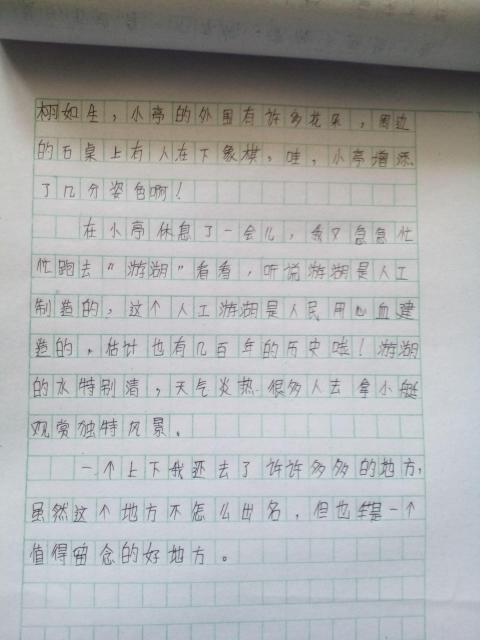 栩如生，小亭的外围有许多花朵，周边
的石桌上有人在下象棋，哇，小亭增添
了几分姿色啊！
在小亭休息了一会儿，我又急急忙
忙跑去“游湖”看看，听说游湖是人工
制造的，这个人工游湖是人民用心血建
造的，估计也有几百年的历史哇！游湖
的水特别清，天气炎热很多人去拿小艇
观赏独特风景。
一个上下我还去了许许多多的地方，
虽然这个地方不怎么出名，但也是一个
值得留念的好地方。